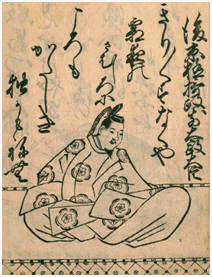 後京極摂政前太政大臣
きり〲すなくや
霜夜の
さむしろに
ころも
かたしき
独かもねむ